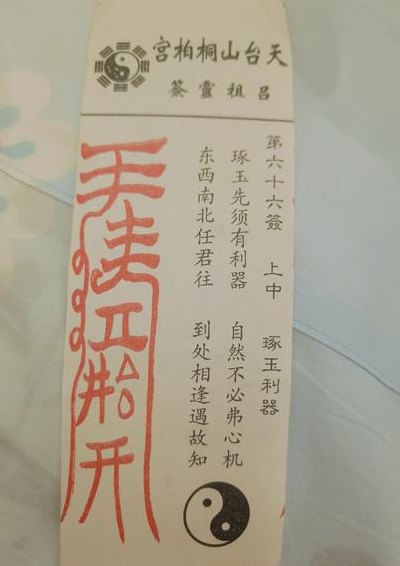 天台山桐柏宮
呂祖靈簽
第六十六簽 上中 琢玉利器
琢玉先须有利器 自然不必弗心机
东西南北任君往 到处相逢遇故知